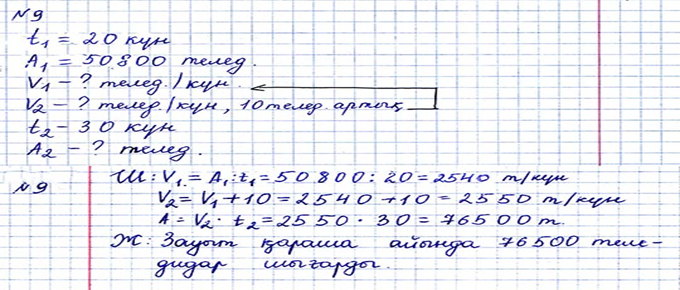 №9
t₁ = 20 күн
A₁ = 50800 телед.
V₁ – ? телед./күн.
V₂ – ? телед./күн, 10 телед. артық
t₂ – 30 күн
A₂ – ? телед.
№9
Ш: V₁ = A₁:t₁ = 50800 : 20 = 2540 т/күн
V₂ = V₁ + 10 = 2540 + 10 = 2550 т/күн
A = V₂ · t₂ = 2550 · 30 = 76500 т.
Ж: Зауыт қараша айында 76500 теле-
дидар шығарды.